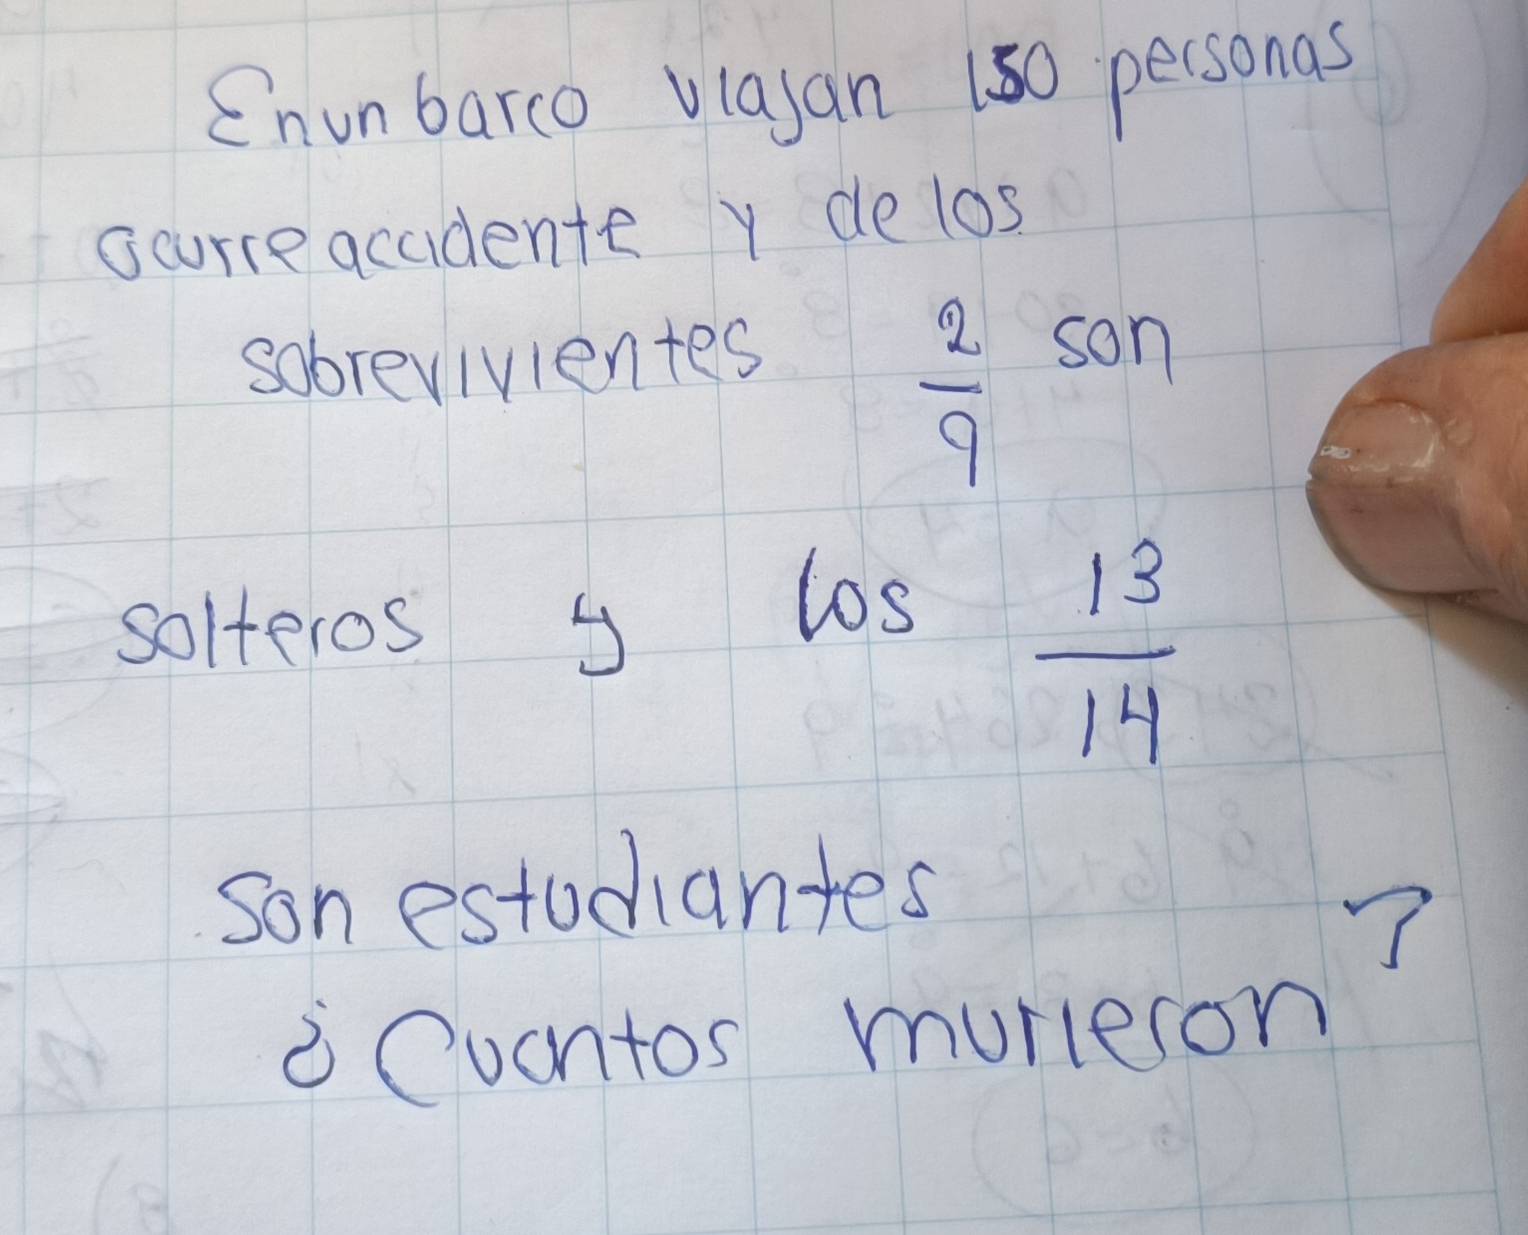 En un barco viajan 150 personas
ocurre accidente y de los
sobrevivientes 2/9 son
solteros y los 13/14
son estudiantes
¿Cuantos murieron?